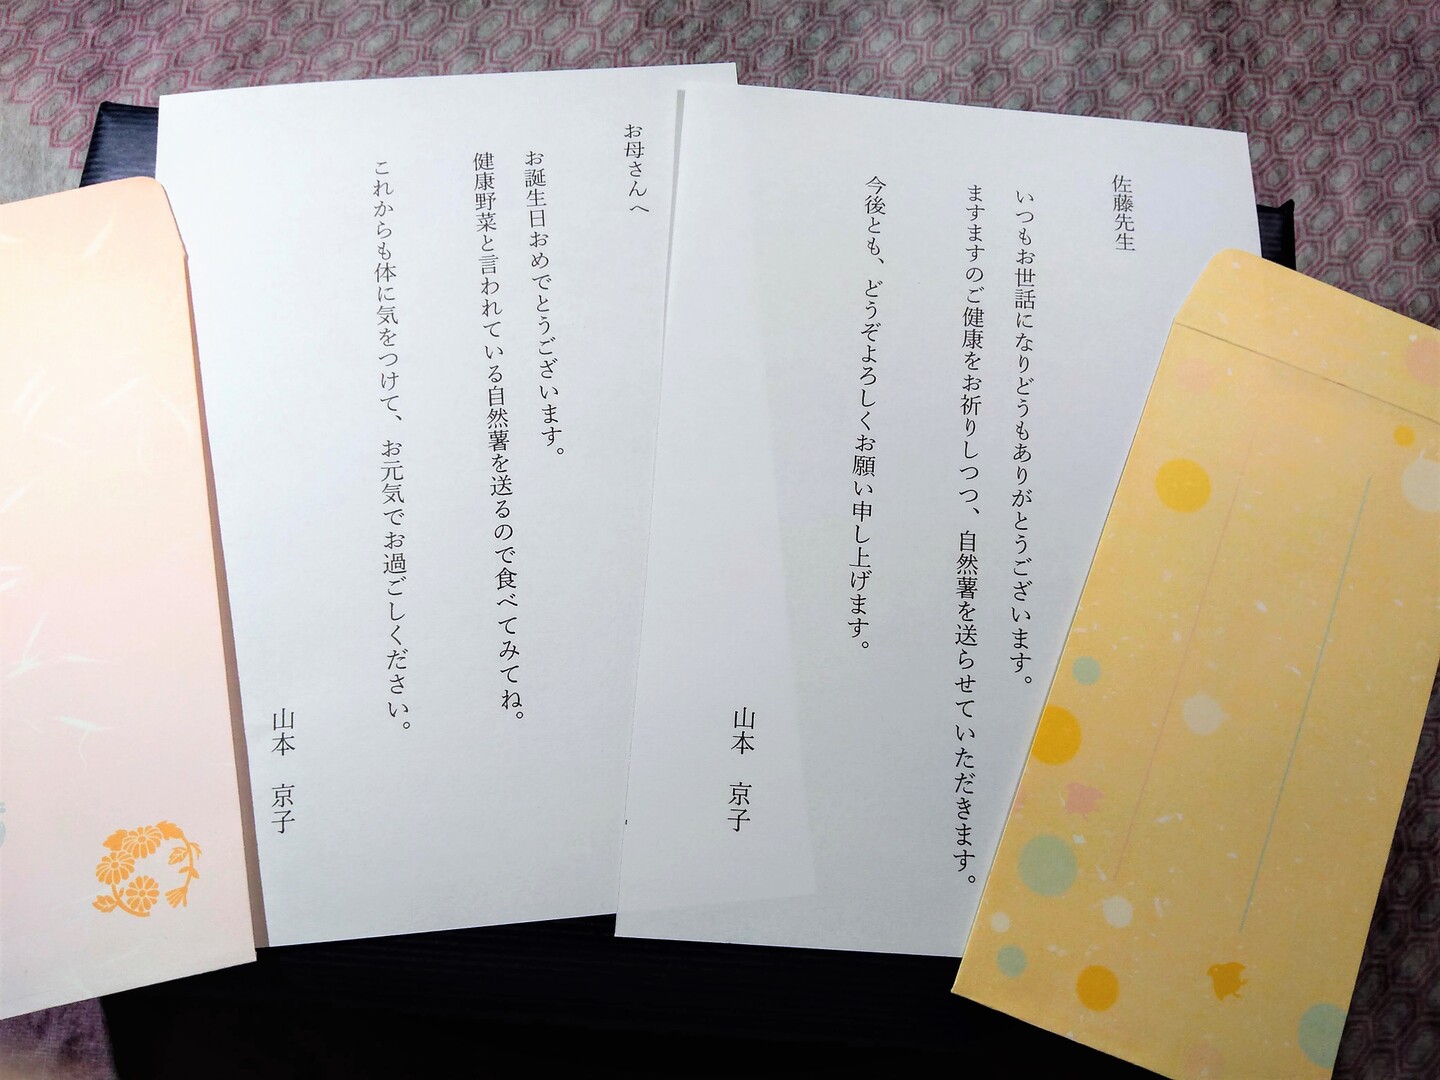 佐藤先生
いつもお世話になりどうもありがとうございます。
ますますのご健康をお祈りしつつ、自然薯を送らせていただきます。
今後とも、どうぞよろしくお願い申し上げます。
山本　京子
お母さんへ
お誕生日おめでとうございます。
健康野菜と言われている自然薯を送るので食べてみてね。
これからも体に気をつけて、お元気でお過ごしください。
山本　京子